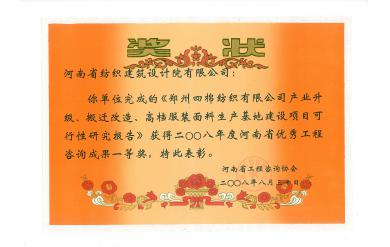 奖 状
河南省纺织建筑设计院有限公司：
你单位完成的《郑州四棉纺织有限公司产业升
级、搬迁改造、高档服装面料生产基地建设项目可
行性研究报告》获得二〇〇八年度河南省优秀工程
咨询成果一等奖，特此表彰。
河南省工程咨询协会
二〇〇八年八月